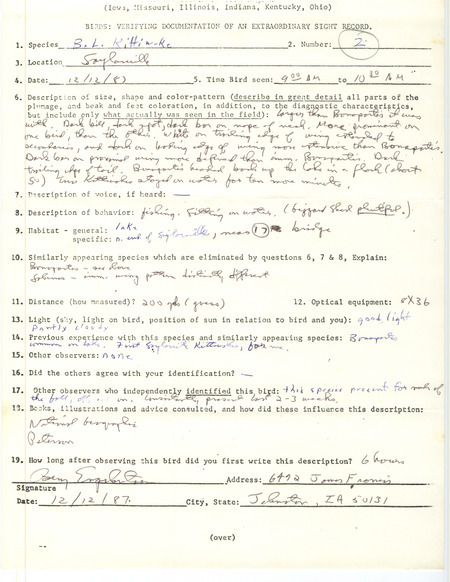 (Iowa, Missouri, Illinois, Indiana, Kentucky, Ohio)
BIRDS: VERIFYING DOCUMENTATION OF AN EXTRAORDINARY SIGHT RECORD.
1. Species B. L. Kittiwake 2. Number: 2
3. Location Saylorville
4. Date: 12/12/87 5. Time Bird seen: 9:00 AM to 10:30 AM
6. Description of size, shape and color-pattern (describe in great detail all parts of the
plumage, and beak and feet coloration, in addition, to the diagnostic characteristics,
but include only what actually was seen in the field): Larger than Bonapartes it was
with. Dark bill, dark spot, dark bar on nape of neck. More prominent on
one bird, than the other. White on trailing edge of wing extended to
secondaries, and dark on leading edge of wing more extensive than Bonaparte's.
Dark bar on proximal wing more defined than imm. Bonapartes. Dark
trailing edge of tail. Bonapartes headed back up the lake in a flock (about
50) Kittiwakes stayed on water for ten more minutes.
7. Description of voice, if heard: —
8. Description of behavior: fishing. Sitting on water. (gizzard shad plentiful.)
9. Habitat - general: lake
specific: n. end of Saylorville, near 17 bridge
10. Similarly appearing species which are eliminated by questions 6, 7 & 8, Explain:
Bonapartes - see above
Sabines - imm. wing pattern distinctly different
11. Distance (how measured)? 200 yds (guess) 12. Optical equipment: 8X36
13. Light (sky, light on bird, position of sun in relation to bird and you): good light
partly cloudy
14. Previous experience with this species and similarly appearing species: Bonapartes
common on lake. First Saylorville Kittiwakes for me.
15. Other observers: None
16. Did the others agree with your identification? —
17. Other observers who independently identified this bird: this species present for much of
the fall, off on. Constantly present last 2-3 weeks.
18. Books, illustrations and advice consulted, and how did these influence this description:
National Geographic
Peterson
19. How long after observing this bird did you first write this description? 6 hours
Address: 6492 James Francis
Signature
Date: 12/12/87. City, State: Johnston, IA 50131
(over)